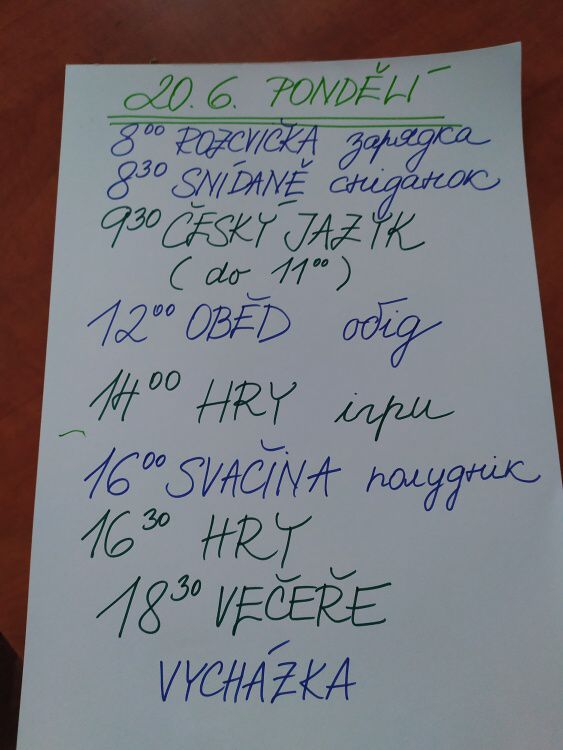 20.6. PONDĚLÍ
8⁰⁰ ROZCVIČKA зарядка
8³⁰ SNÍDANĚ сніданок
9³⁰ ČESKÝ JAZYK
( do 11⁰⁰ )
12⁰⁰ OBĚD обід
14⁰⁰ HRY ігри
16⁰⁰ SVAČINA полуднік
16³⁰ HRY
18³⁰ VEČEŘE
VYCHÁZKA